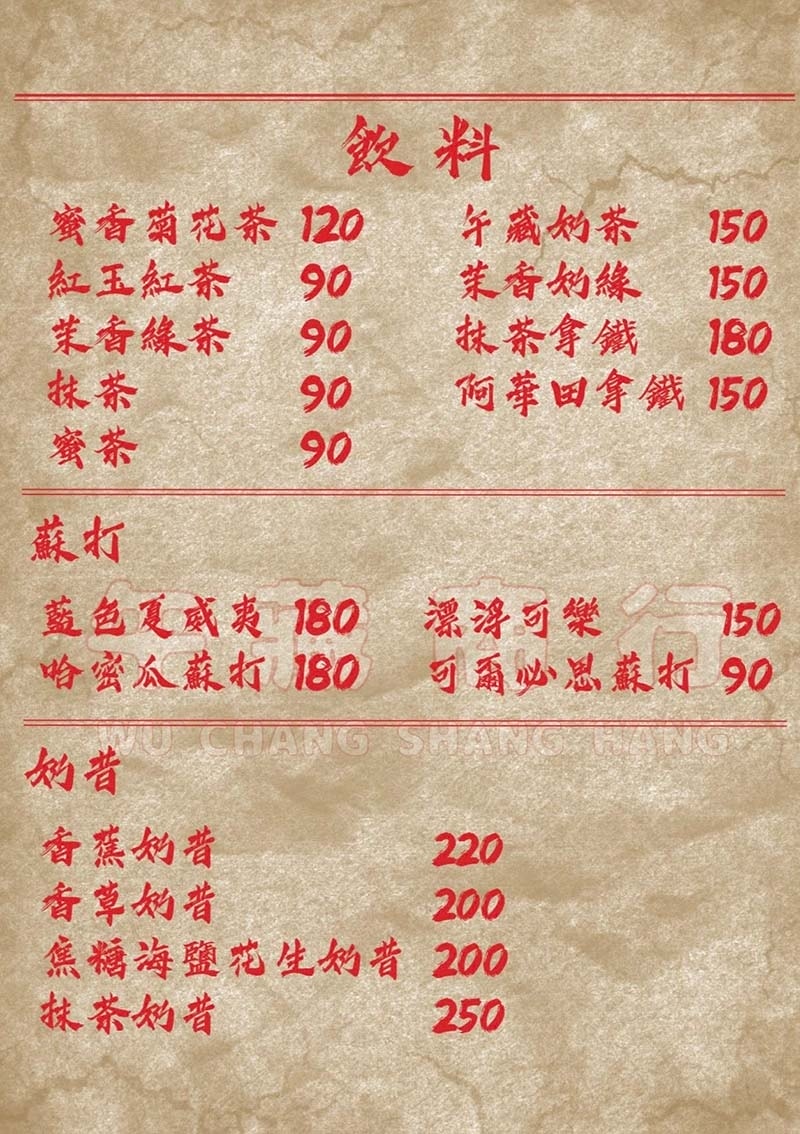 飲料
蜜香菊花茶 120
紅玉紅茶 90
茉香綠茶 90
抹茶 90
蜜茶 90
午藏奶茶 150
茉香奶綠 150
抹茶拿鐵 180
阿華田拿鐵 150
蘇打
藍色夏威夷 180
哈密瓜蘇打 180
漂浮可樂 150
可爾必思蘇打 90
商行
WU CHANG SHANG HANG
奶昔
香蕉奶昔 220
香草奶昔 200
焦糖海鹽花生奶昔 200
抹茶奶昔 250